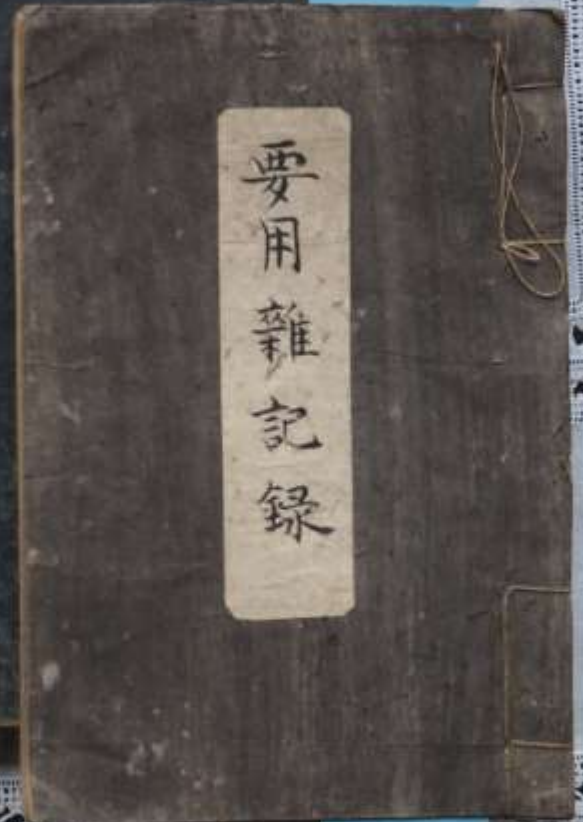 要用雜記録